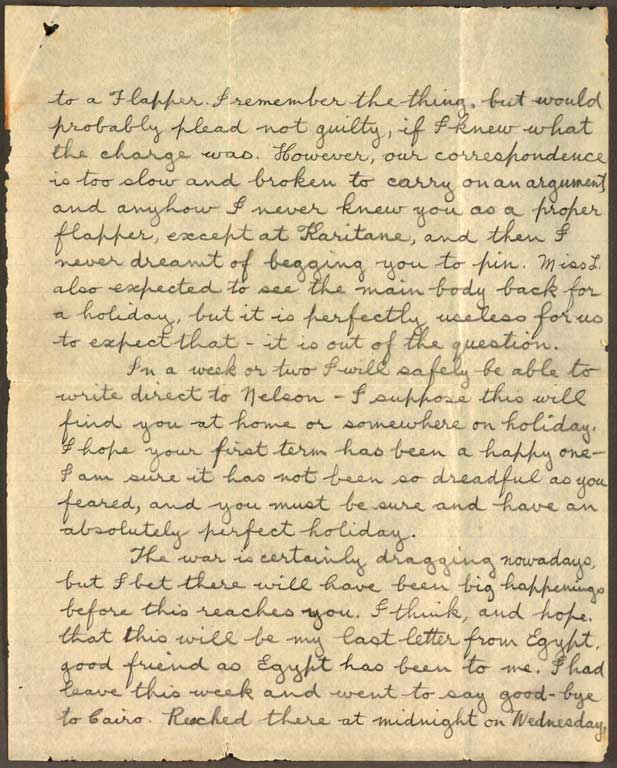 to a Flapper. I remember the thing, but would
probably plead not guilty, if I knew what
the charge was. However, our correspondence
is too slow and broken to carry on an argument,
and anyhow I never knew you as a proper
flapper, except at Karitane, and then I
never dreamt of begging you to pin. Miss L.
also expected to see the main body back for
a holiday, but it is perfectly useless for us
to expect that - it is out of the question.
In a week or two I will safely be able to
write direct to Nelson - I suppose this will
find you at home or somewhere on holiday.
I hope your first term has been a happy one-
I am sure it has not been so dreadful as you
feared, and you must be sure and have an
absolutely perfect holiday.
The war is certainly dragging nowadays,
but I bet there will have been big happenings
before this reaches you. I think, and hope,
that this will be my last letter from Egypt,
good friend as Egypt has been to me. I had
leave this week and went to say good-bye
to Cairo. Reached there at midnight on Wednesday,